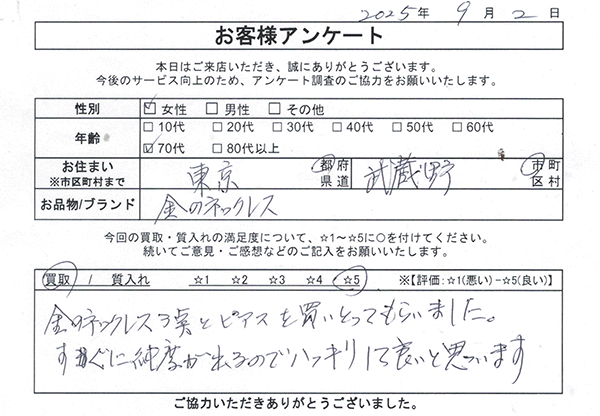 2025年 9月 2日
お客様アンケート
本日はご来店いただき、誠にありがとうございます。
今後のサービス向上のため、アンケート調査のご協力をお願いいたします。
性別 ☑女性 □男性 □その他
年齢 □10代 □20代 □30代 □40代 □50代 □60代
☑70代 □80代以上
お住まい ※市区町村まで 東京 都府県道 武蔵野 市町区村
お品物/ブランド 金のネックレス
今回の買取・質入れの満足度について、☆1~☆5に○を付けてください。
続いてご意見・ご感想などのご記入をお願いいたします。
買取 / 質入れ ☆1 ☆2 ☆3 ☆4 ☆5 ※【評価:☆1(悪い)-☆5(良い)】
金のネックレス3点とピアスを買いとってもらいました。
すぐに純度が出るのでハッキリして良いと思います
ご協力いただきありがとうございました。